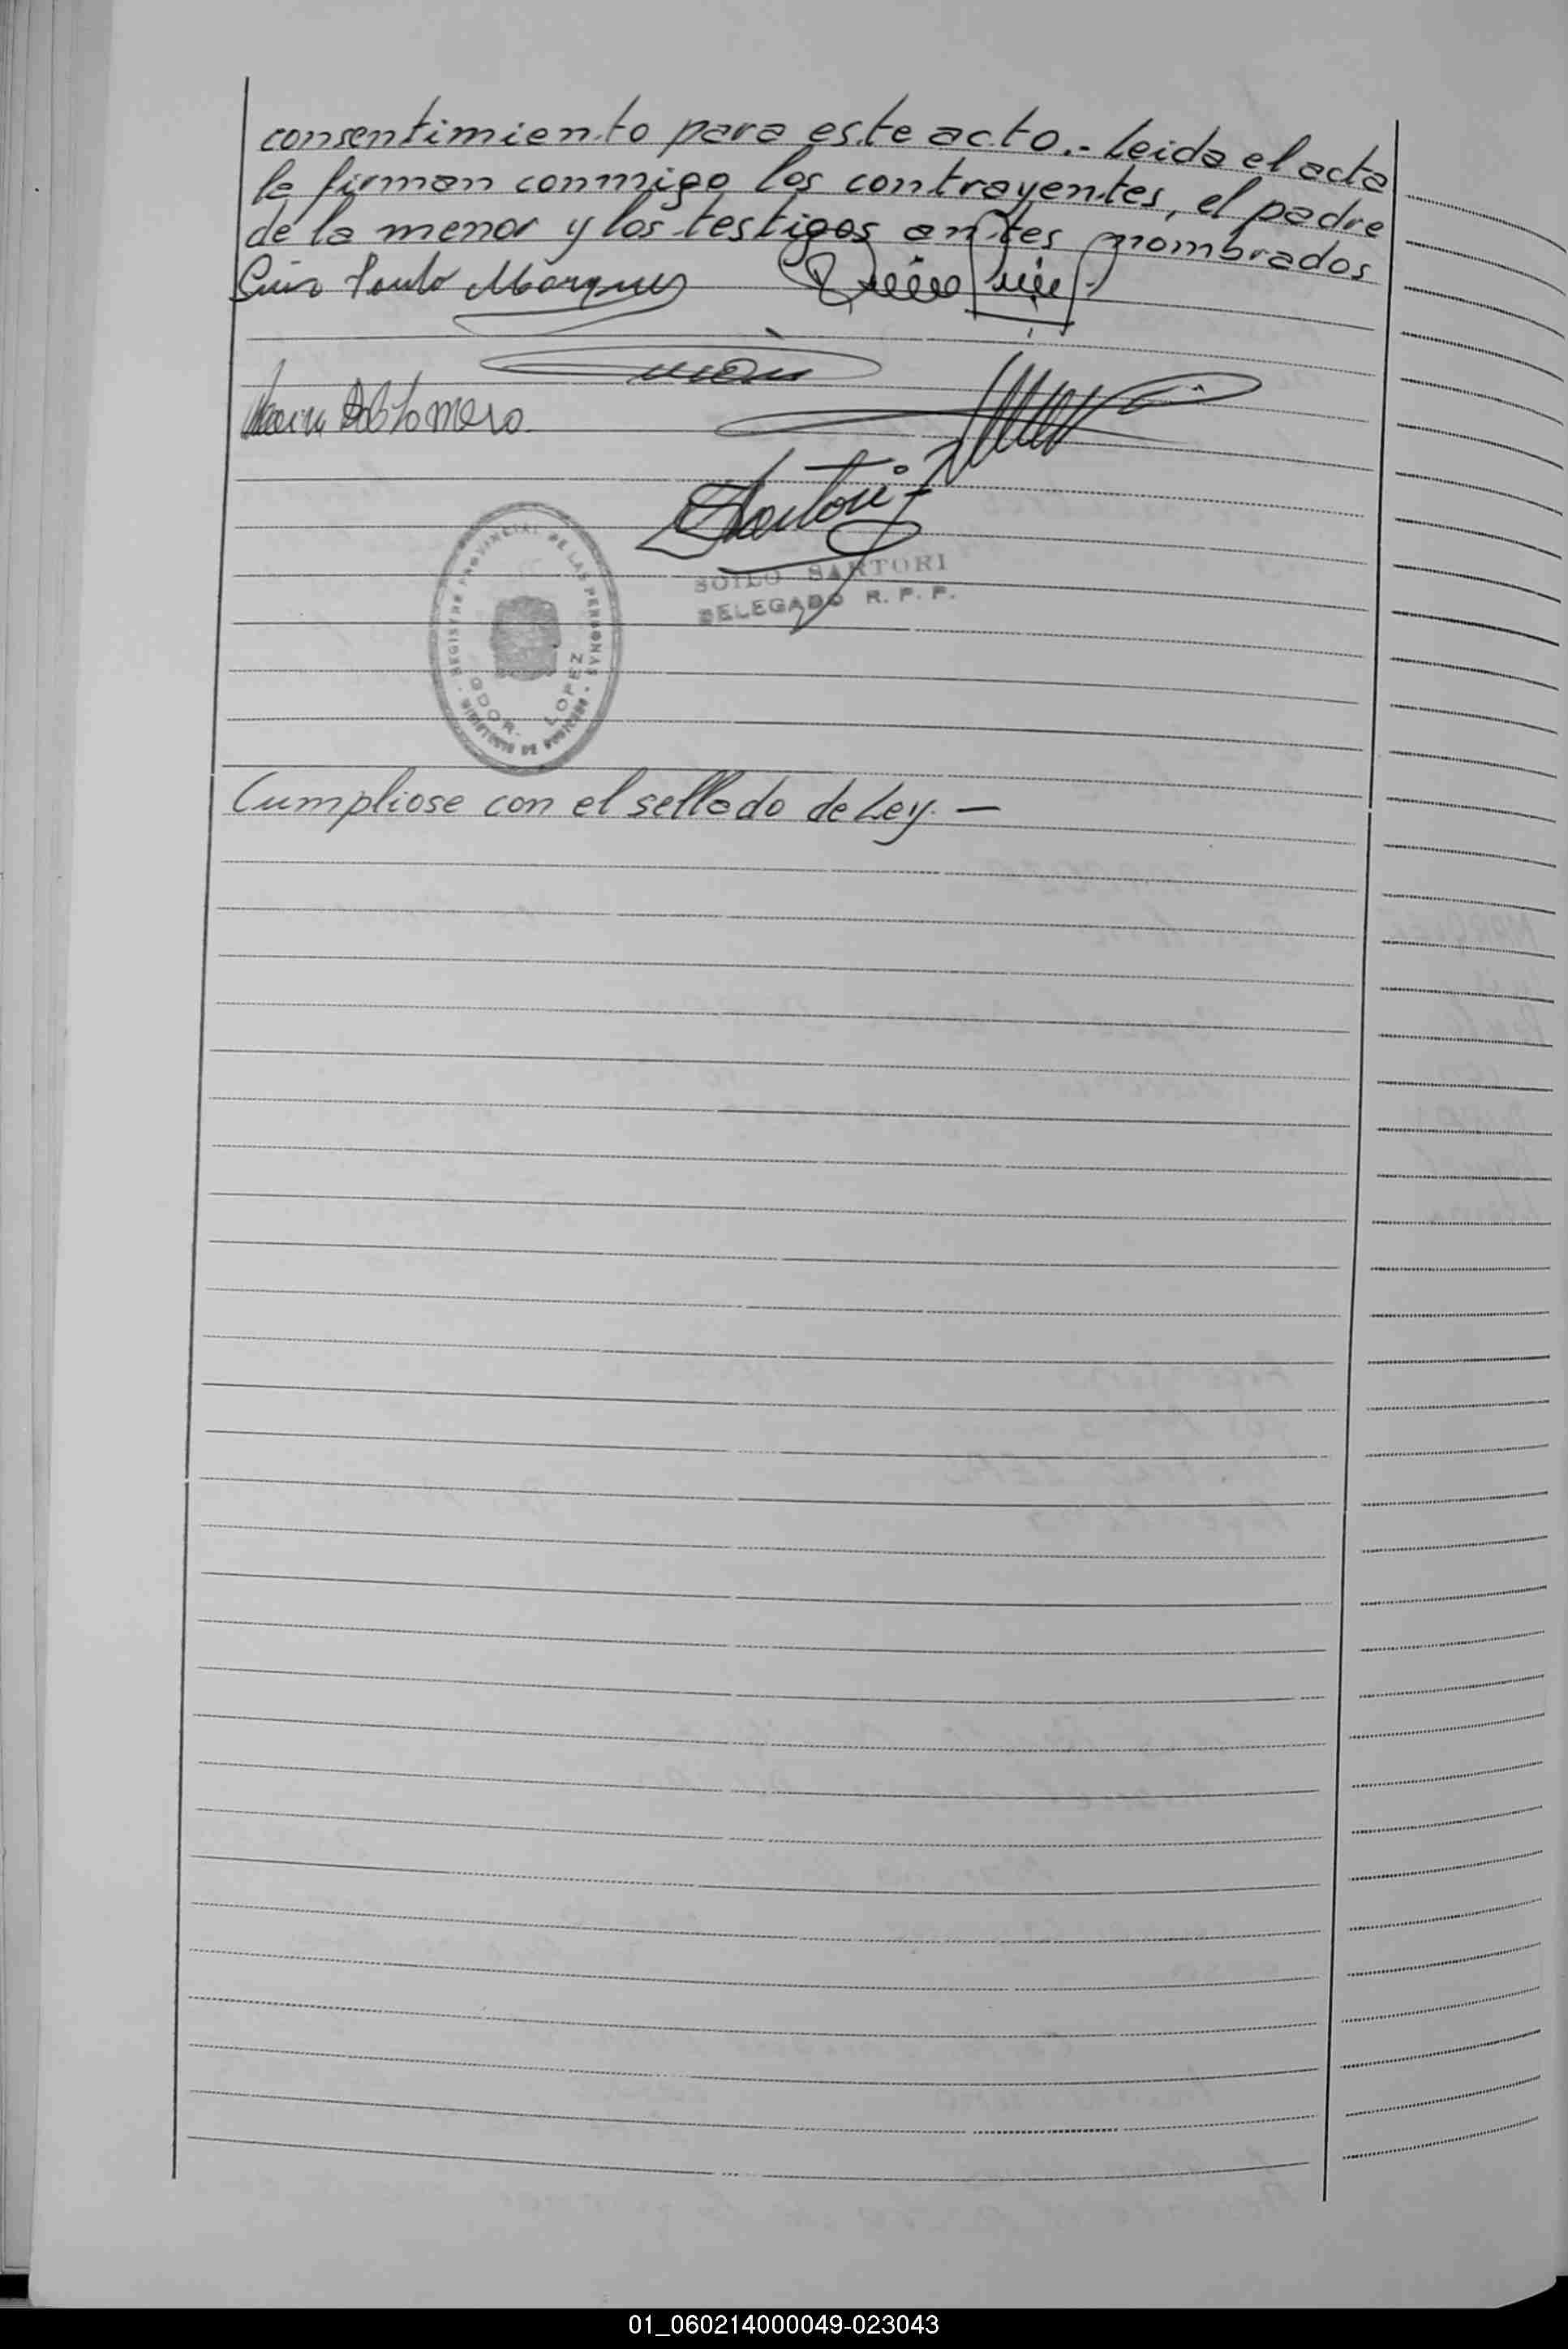 consentimiento para este acto.- Leida el acta
la firman conmigo los contrayentes, el padre
de la menor y los testigos antes nombrados
Luis Paulo Marquez
SOILO SARTORI
DELEGADO R. P. P.
REGISTRO PROVINCIAL DE LAS PERSONAS
GDOR. LOPEZ
MINISTERIO DE GOBIERNO
Cumpliose con el sellado de Ley. —
01_060214000049-023043